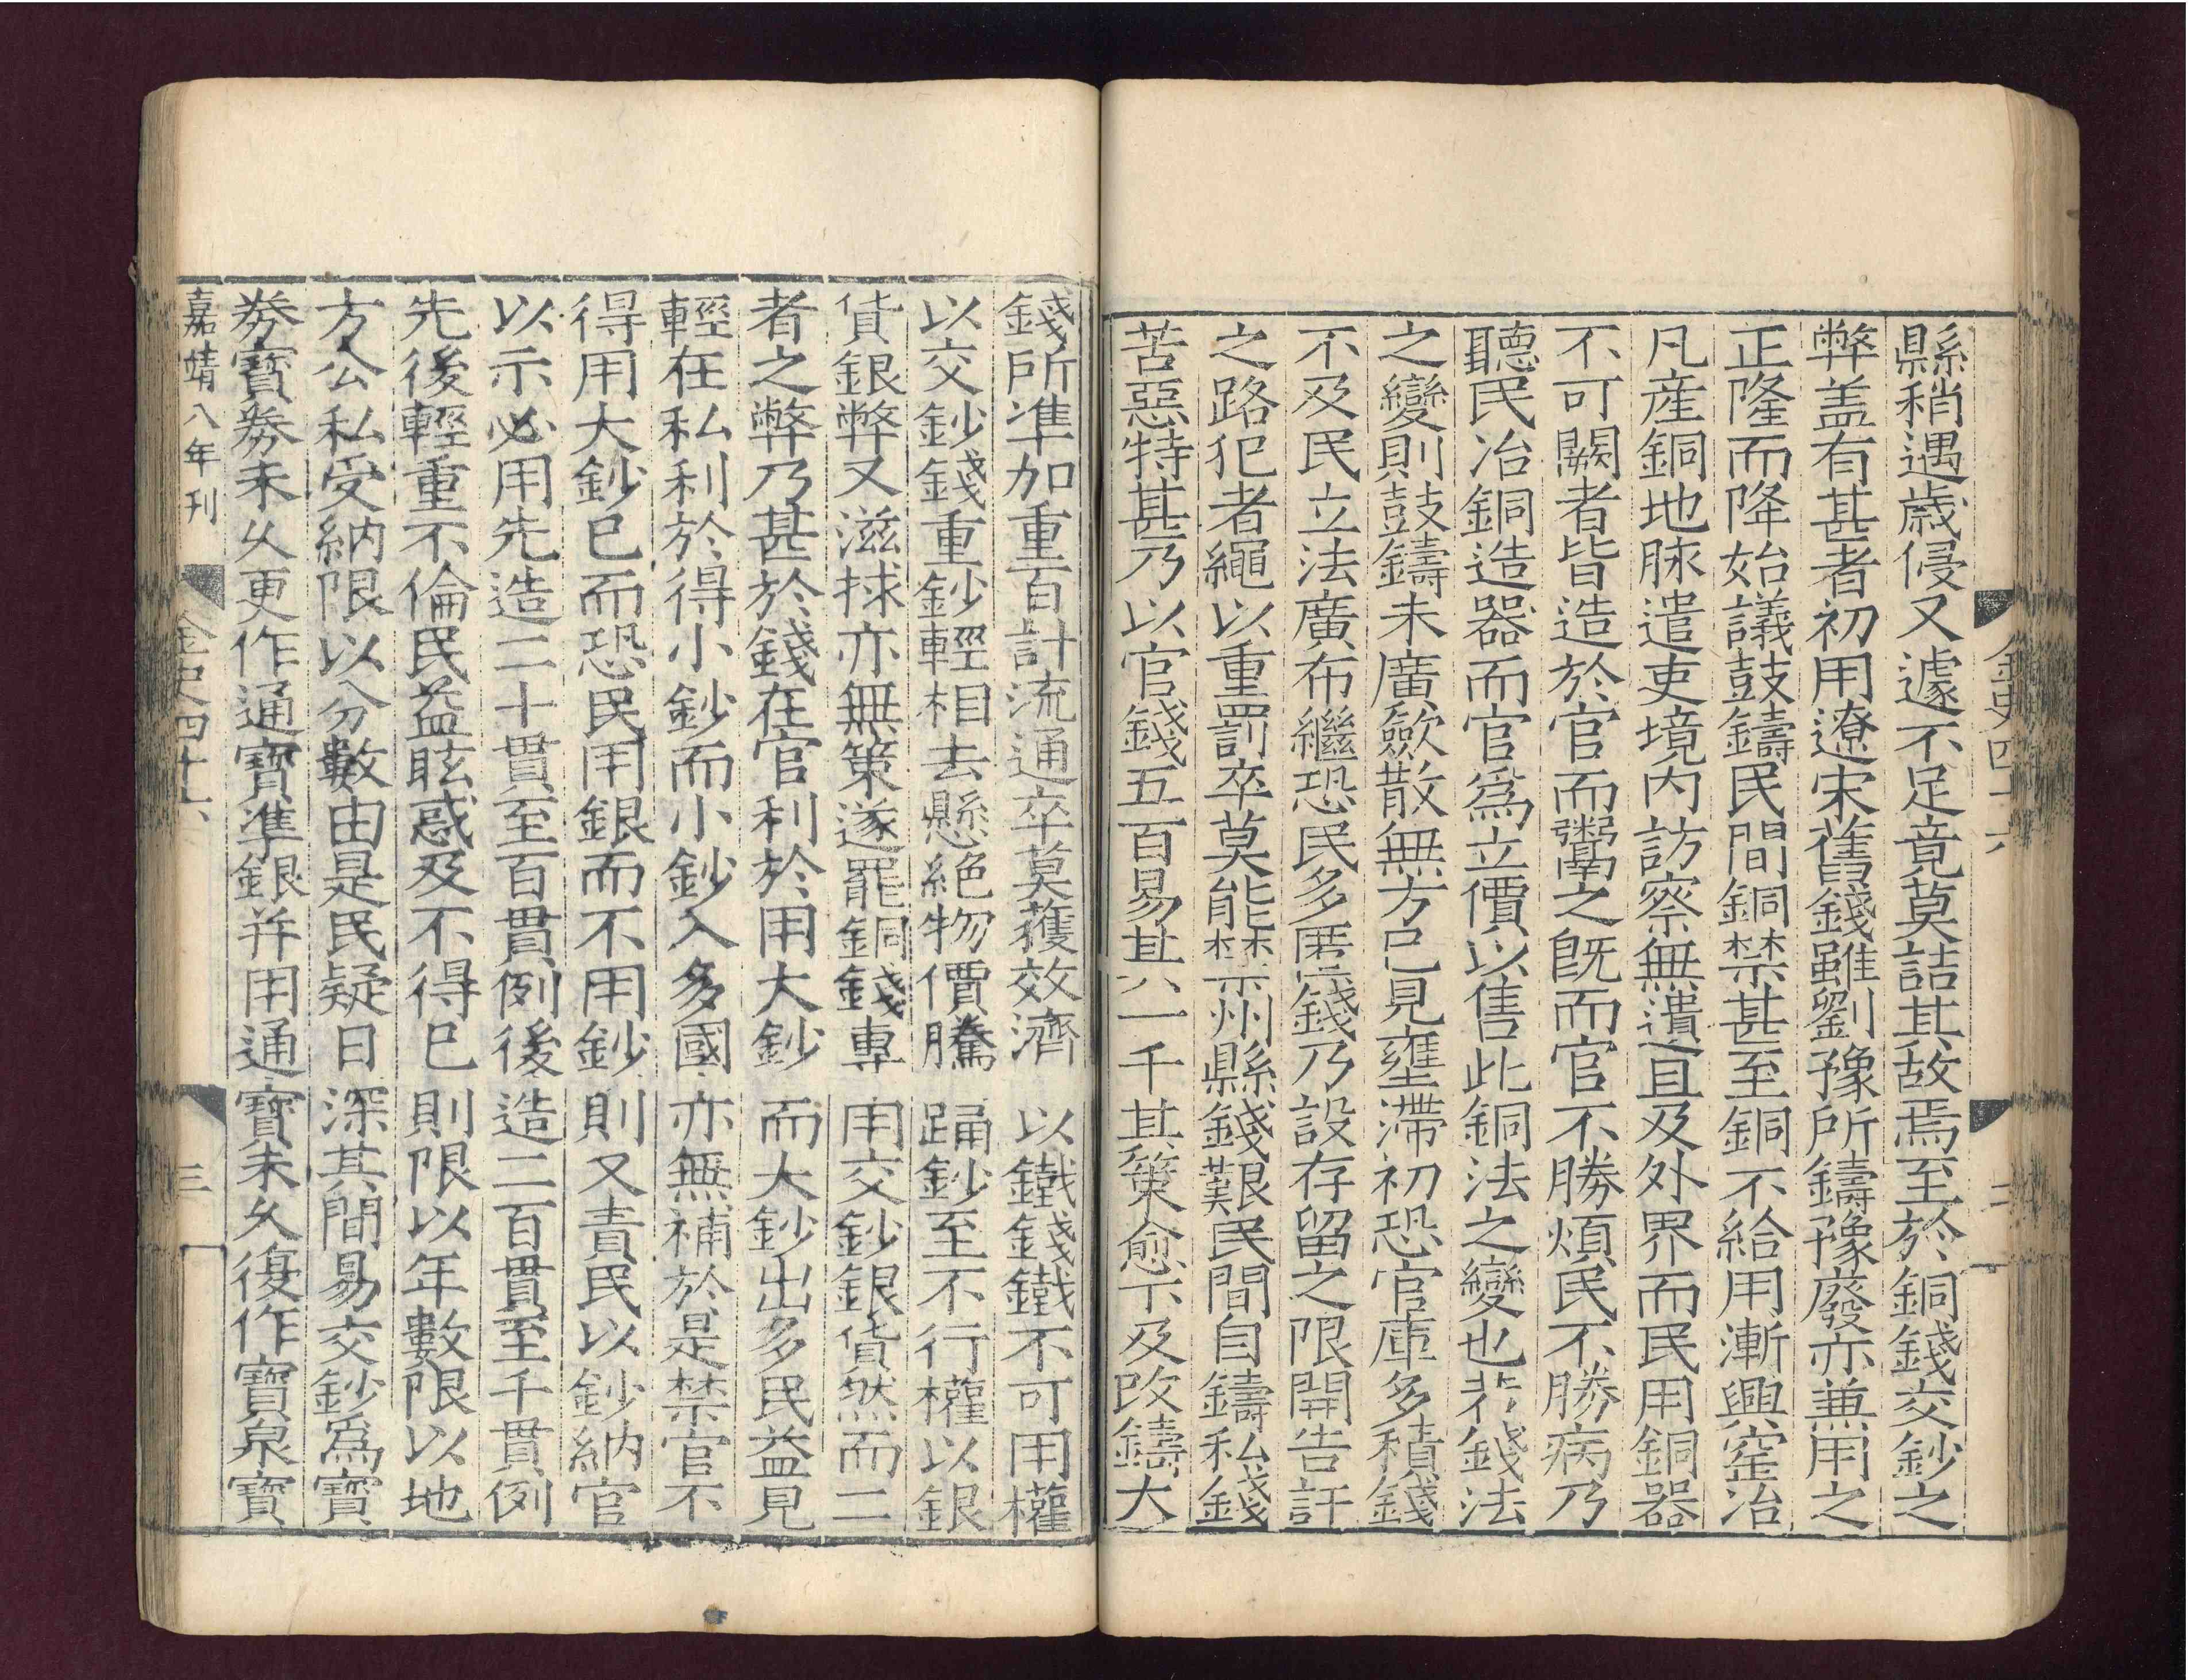 金史四十六
二
縣稍遇歲侵又遽不足竟莫詰其故焉至於銅錢交鈔之
弊盖有甚者初用遼宋舊錢雖劉豫所鑄豫廢亦兼用之
正隆而降始議鼓鑄民間銅禁甚至銅不給用漸興窑冶
凡産銅地脉遣吏境内訪察無遺且及外界而民用銅器
不可闕者皆造於官而鬻之既而官不勝煩民不勝病乃
聽民冶銅造器而官爲立價以售此銅法之變也若錢法
之變則鼓鑄未廣斂散無方已見壅滯初恐官庫多積錢
不及民立法廣布繼恐民多匿錢乃設存留之限開告訐
之路犯者繩以重罰卒莫能禁州縣錢艱民間自鑄私錢
苦惡特甚乃以官錢五百易其一千其策愈下及改鑄大
錢所準加重百計流通卒莫獲效濟以鐵錢鐵不可用權
以交鈔錢重鈔輕相去懸絶物價騰踊鈔至不行權以銀
貨銀弊又滋捄亦無策遂罷銅錢專用交鈔銀貨然而二
者之弊乃甚於錢在官利於用大鈔而大鈔出多民益見
輕在私利於得小鈔而小鈔入多國亦無補於是禁官不
得用大鈔已而恐民用銀而不用鈔則又責民以鈔納官
以示必用先造二十貫至百貫例後造二百貫至千貫例
先後輕重不倫民益眩惑及不得已則限以年數限以地
方公私受納限以分數由是民疑日深其間易交鈔爲寶
券寶券未乆更作通寶準銀并用通寶未乆復作寶泉寶
嘉靖八年刊
金史四十六
三